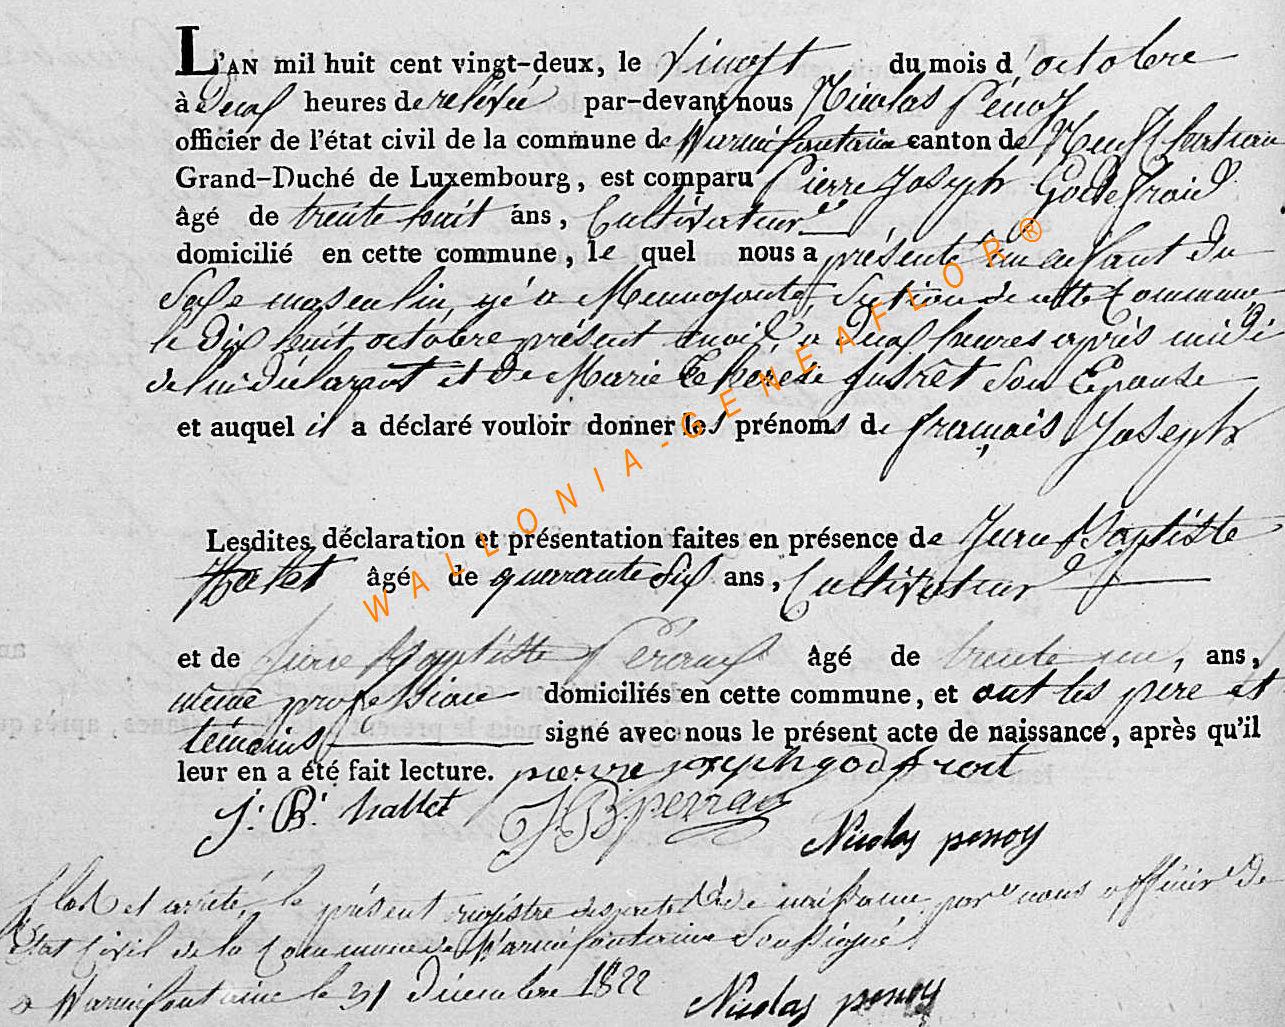 L'AN mil huit cent vingt-deux, le vingt du mois d'octobre
à deux heures de relévée par-devant nous Nicolas Penoy
officier de l'état civil de la commune de Warmifontaine canton de Neufchateau
Grand-Duché de Luxembourg, est comparu Pierre Joseph Godefroid
âgé de trente huit ans, Cultivateur
domicilié en cette commune, le quel nous a présenté un enfant du
Sexe masculin, né a Menugoutte Section de cette Commune
le dix huit octobre présent mois a deux heures après midi
de lui déclarant et de Marie Thérése son Epouse
et auquel il a déclaré vouloir donner les prénoms de françois Joseph
Lesdites déclaration et présentation faites en présence de Jean Baptiste
Hallet âgé de quarante six ans, Cultivateur
et de Jean Baptiste Peraux âgé de trente un, ans,
même profession domiciliés en cette commune, et ont les pere et
témoins signé avec nous le présent acte de naissance, après qu'il
leur en a été fait lecture. pierre joseph godfroit
J. B. hallet JB perraux
Nicolas penoy
Clos et arrété, le présent registre des actes de naissance, par nous officier de
Etat Civil de la Commune de Warmifontaine Soussigné
a Warmifontaine le 31 Décembre 1822 Nicolas penoy
WALLONIA-GENEAFLOR®